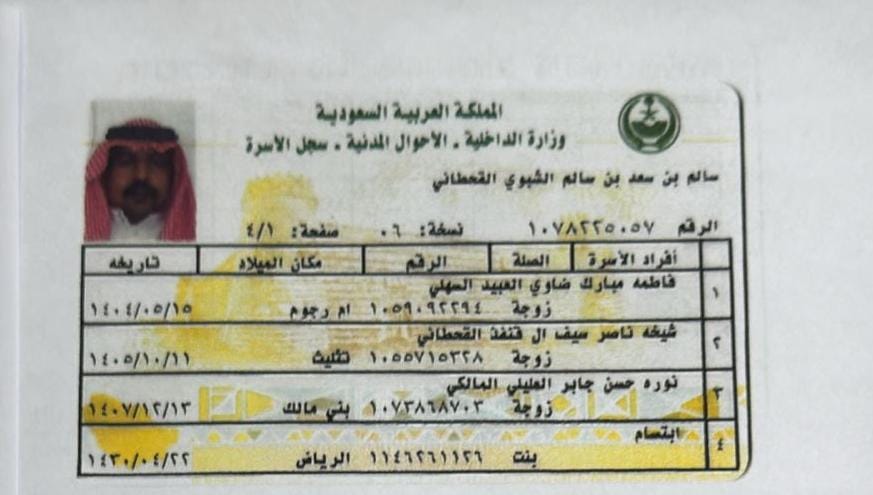 المملكة العربية السعودية
وزارة الداخلية ـ الأحوال المدنية ـ سجل الأسرة
سالم بن سعد بن سالم الشبوي القحطاني
الرقم ١٠٧٨٢٢٥٠٥٧ نسخة: ٠٦ صفحة: ٤/١
أفراد الأسرة الصلة الرقم مكان الميلاد تاريخه
١ فاطمه مبارك ضاوي العبيد السهلي
زوجة ١٠٥٩٠٩٢٢٩٤ ام رجوم ١٤٠٤/٠٥/١٥
٢ شيخه ناصر سيف ال قنفذ القحطاني
زوجة ١٠٥٥٧١٥٣٢٨ تثليث ١٤٠٥/١٠/١١
٣ نوره حسن جابر العليلي المالكي
زوجة ١٠٧٣٨٦٨٧٠٣ بني مالك ١٤٠٧/١٢/١٣
٤ ابتسام
بنت ١١٤٦٢٦١١٢٦ الرياض ١٤٣٠/٠٤/٢٢